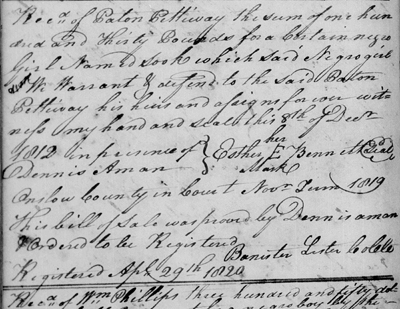 Recd. of Paton Pettiway the sum of one hun
dred and thirty Pounds for a Certain negro
Girl Named sook which said Negro girl
I Do Warrant & defend to the said Paton
Pettiway his heirs and assigns for ever wit-
ness my hand and seal this 8th of Decr
1812 in presence of } Esther her E mark Bennett Seal
Dennis Aman
Onslow County in Court Novr Term 1819
This bill of Sale was proved by Dennis aman
& Ordered to be Registered
Banister Lester
Registered Apl. 29th 1820
Recd. of Wm Phillips three hundred and fifty dol-